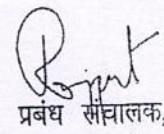 प्रबंध संचालक,